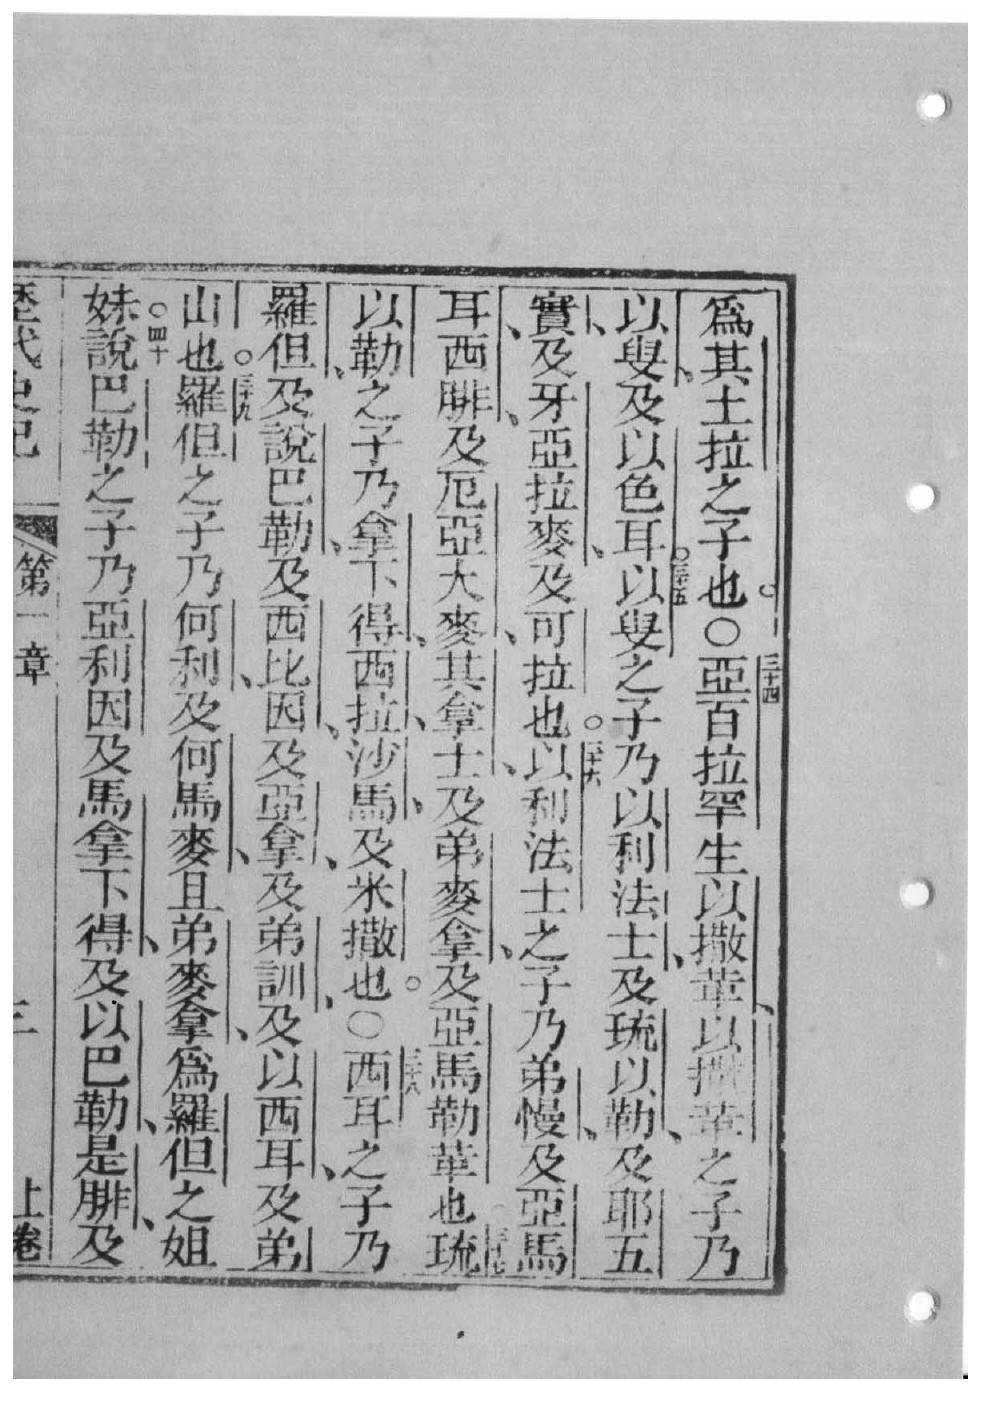 爲其土拉之子也。〇三十四亞百拉罕生以撒革、以撒革之子乃
以叟、及以色耳。三十五以叟之子乃以利法士、及琉以勒、及耶五
實、及牙亞拉麥、及可拉也。三十六以利法士之子乃弟慢、及亞馬
耳、西腓、及厄亞大麥、其拿士、及弟麥拿、及亞馬勒革也。三十七琉
以勒、之子乃拿下得、西拉、沙馬、及米撒也。〇三十八西耳之子乃
羅但及說巴勒、及西比因、及亞拿、及弟訓、及以西耳、及弟
山也。三十九羅但之子乃何利、及何馬麥、且弟麥拿、爲羅但之姐
妹。四十說巴勒之子乃亞利因及馬拿下得、及以巴勒、是腓、及
歷代史記 第一章 三 上卷